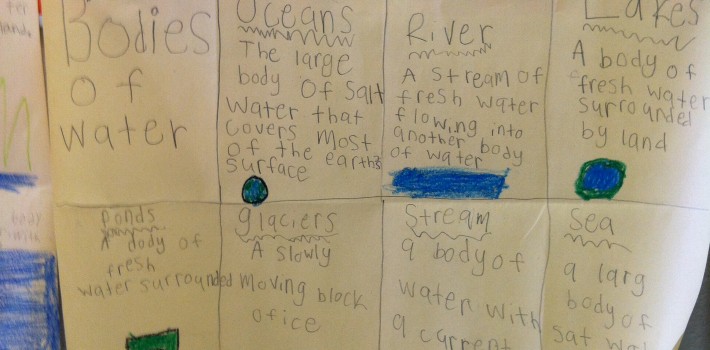 Bodies
of
water
Oceans
The large
body of salt
water that
covers most
of the earth's
surface
River
A stream of
fresh water
flowing into
another body
of water
Lakes
A body of
fresh water
surrounded
by land
Ponds
A dody of
fresh
water surrounded
glaciers
A slowly
moving block
of ice
Stream
a body of
water with
a current
Sea
a larg
body of
sat